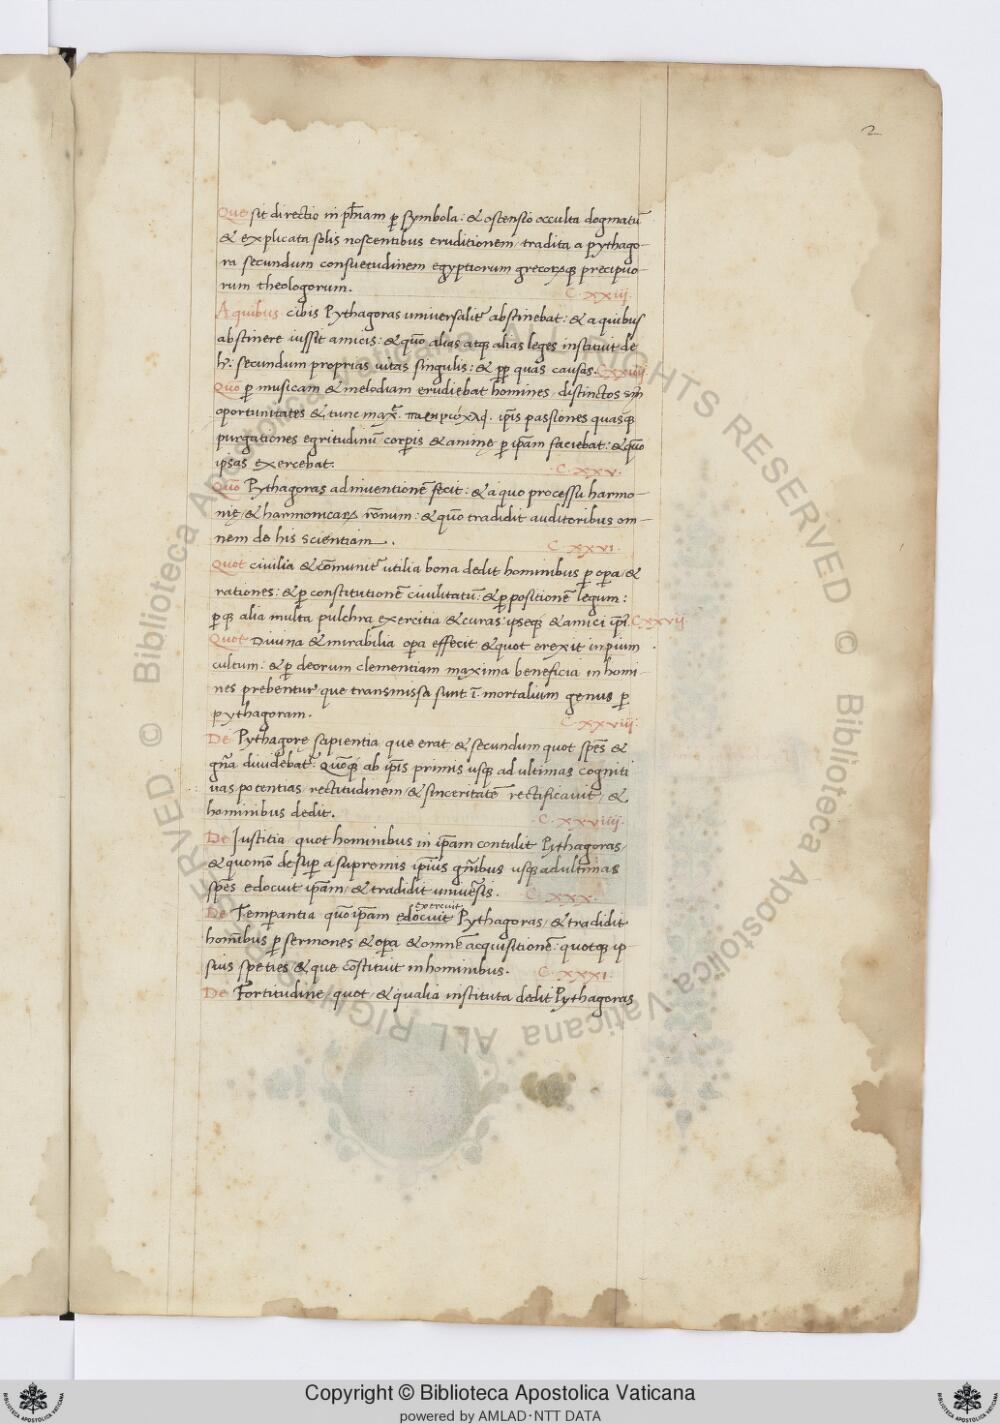 2
Que sit directio in ph̄iam ꝑ symbola: & ostensio occulta dogmatū
& explicata solis noscentibus eruditionem, tradita a pythago-
ra secundum consuetudinem egyptiorum grecorꝫqꝫ precipuo-
rum theologorum.
C. xxiij.
A quibus cibis Pythagoras universalit̄ abstinebat: & a quibus
abstinere iussit amicis: & quō alias atqꝫ alias leges instituit de
h̄. secundum proprias uitas singulis: & ꝓp̄ quas causas. C xxiiij
Quō ꝑ musicam & melodiam erudiebat homines, distinctos
oportunitates & tunc max̄. ip̄is passiones quasqꝫ
purgationes egritudinū corp̄is & animę ꝑ ip̄am faciebat: & quō
ipsas exercebat.
.C. xxv.
Quō Pythagoras adinuentionē fecit: & a quo processu harmo-
nię, & harmonicaꝝ rōnum: & quō tradidit auditoribus om-
nem de his scientiam.
C xxvi.
Quot ciuilia & cōmunit̄ utilia bona dedit hominibus ꝑ oꝑa, &
rationes: & ꝑ constitutionē ciuilitatū: & ꝑ positionē legum:
ꝑqꝫ alia multa pulchra exercitia & curas: ipseqꝫ & amici ip̄i. C xxvij
Quot Diuina & mirabilia oꝑa effecit & quot erexit in pium
cultum: & ꝑ deorum clementiam maxima beneficia in homi-
nes prebentur que transmissa sunt ī. mortalium genus ꝑ
pythagoram.
C xxviij:
De Pythagorę sapientia que erat & secundum quot sp̄es &
gn̄a diuidebat̄. Quōqꝫ ab ip̄is primis usqꝫ ad ultimas cogniti
uas potentias, rectitudinem, & sinceritatē rectificauit, &
hominibus dedit.
.C. xxviiij.
De Iustitia, quot hominibus in ip̄am contulit Pythagoras,
& quomō desuꝑ a supremis ip̄ius gn̄ibus usqꝫ ad ultimas
sp̄es edocuit ip̄am, & tradidit uniuersis.
C. xxx.
exercuit
De Temꝑantia quō ip̄am edocuit Pythagoras, & tradidit
hominibus ꝑ sermones & oꝑa & omnē acquisitionē: quotqꝫ ip
sius speties & que cōstituit in hominibus.
C. xxxi.
De Fortitudine, quot, & qualia instituta dedit Pythagoras
Copyright © Biblioteca Apostolica Vaticana
powered by AMLAD·NTT DATA